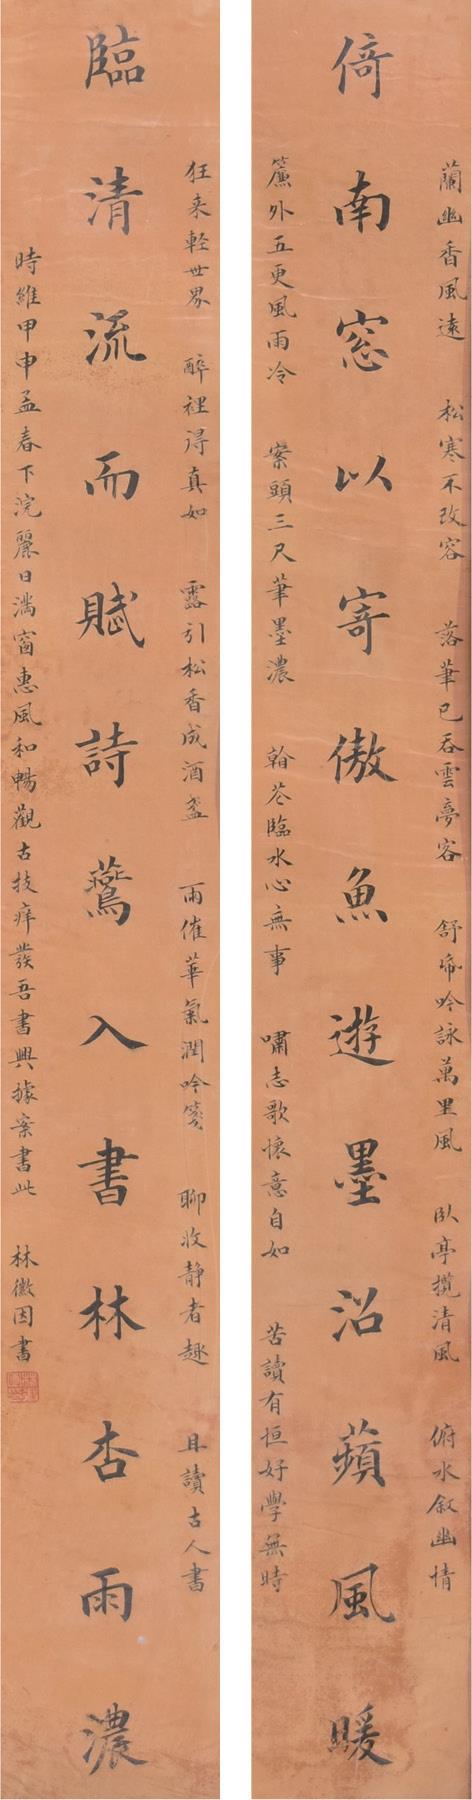 蘭幽香風遠 松寒不改容 落筆已吞雲夢客 舒帋吟詠萬里風 臥亭攬清風 俯水敘幽情
倚南窓以寄傲魚遊墨沼蘋風暖
簾外五更風雨冷 案頭三尺筆墨濃 翰花臨水心無事 嘯志歌懷意自如 苦讀有恒好學無時
狂来輕世界 醉裡得真如 露引松香成酒盞 雨催華氣潤吟箋 聊收静者趣 且讀古人書
臨清流而賦詩鶯入書林杏雨濃
時維甲申孟春下浣麗日滿窗惠風和暢觀古技痒發吾書興據案書此 林徽因書